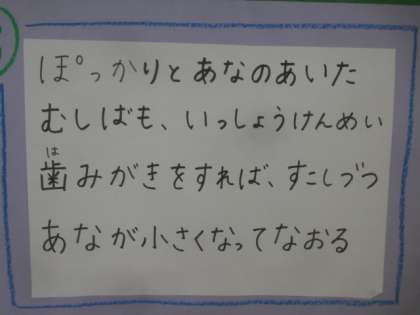 ぽっかりとあなのあいた
むしばも、いっしょうけんめい
歯みがきをすれば、すこしづつ
あなが小さくなってなおる